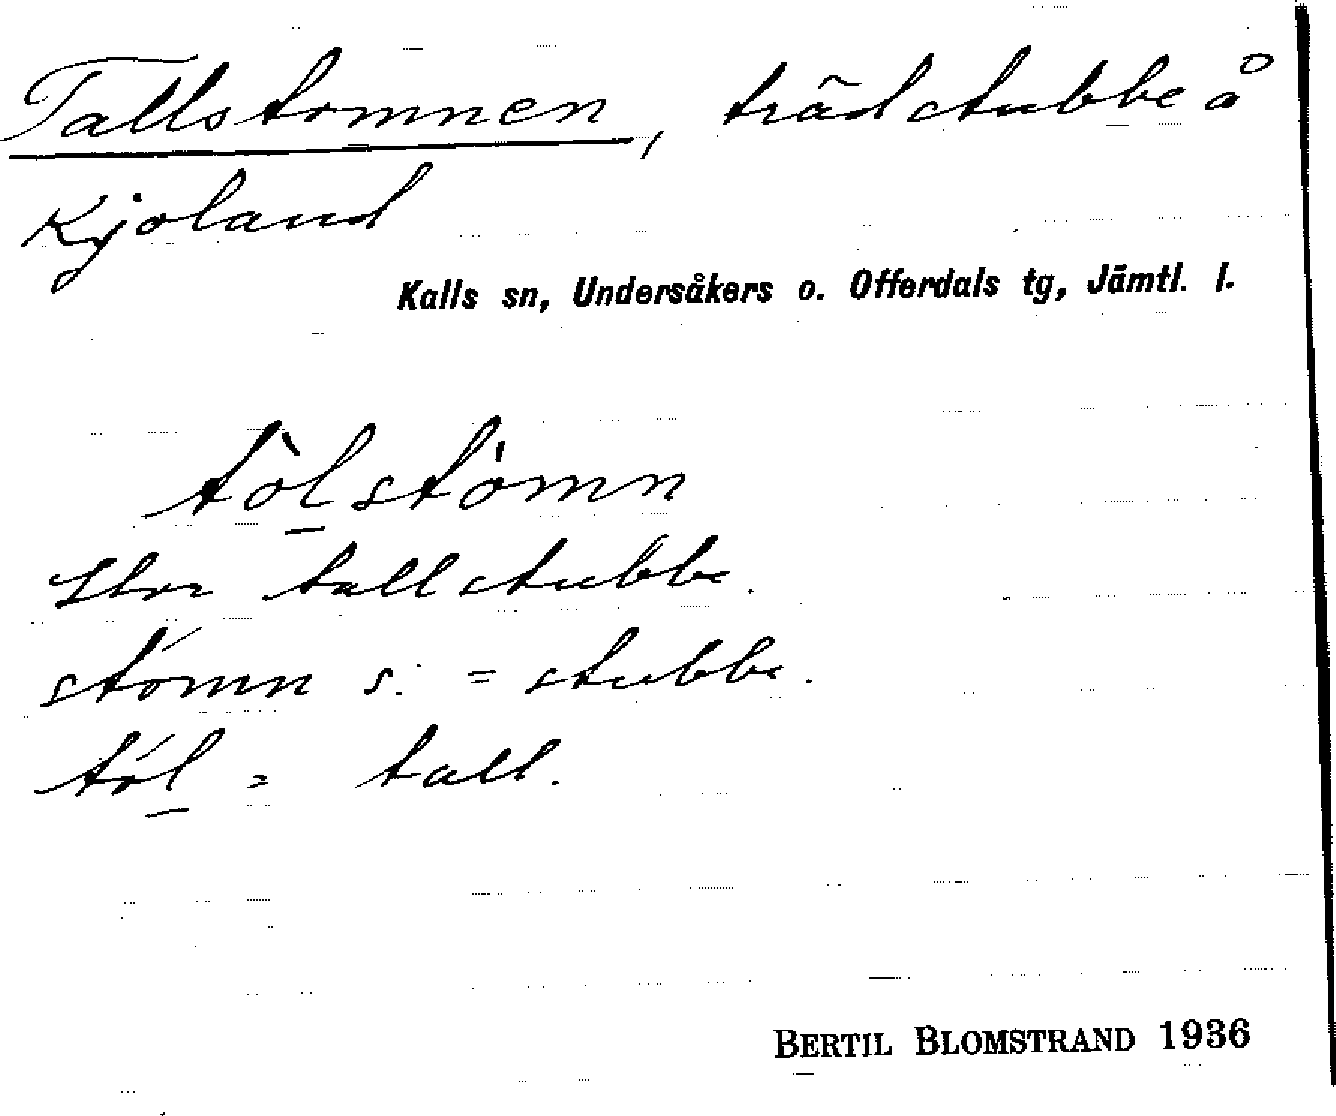 Tallstomnen, trädstubbe å
Kjoland
Kalls sn, Undersåkers o. Offerdals tg, Jämtl. l.
tòlstómn
Stor tallstubbe.
stómn s. = stubbe.
tól = tall.
BERTIL BLOMSTRAND 1936